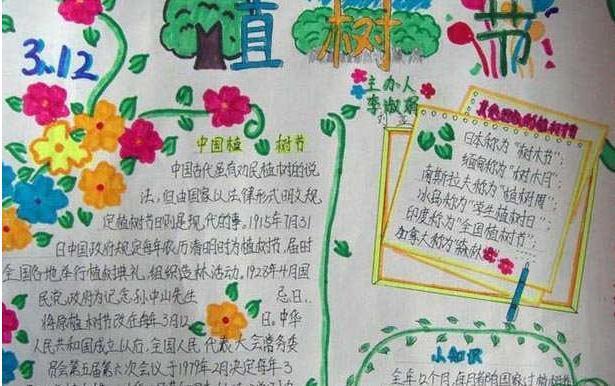 3.12
植树节
主办人
李淑娟
中国植树节
中国古代虽有劝民植树的说
法,但由国家以法律形式明文规
定植树节日则是现代的事。1915年7月31
日中国政府规定每年农历清明时为植树节,届时
全国各地举行植树典礼,组织造林活动。1928年4月国
民党政府为记念孙中山先生 忌日..
将原植树节改在每年3月12 日。中华
人民共和国成立以后,全国人民代表大会常务委
员会第五届第六次会议于1979年2月决定每年3
植树节
日本称为“树木节”;
缅甸称为“树木月”
南斯拉夫称为“植树周”
冰岛称为“学生植树日”;
印度称为“全国植树节”;
加拿大称为“森林
小知识
全年12个月,每月都有国家过的树